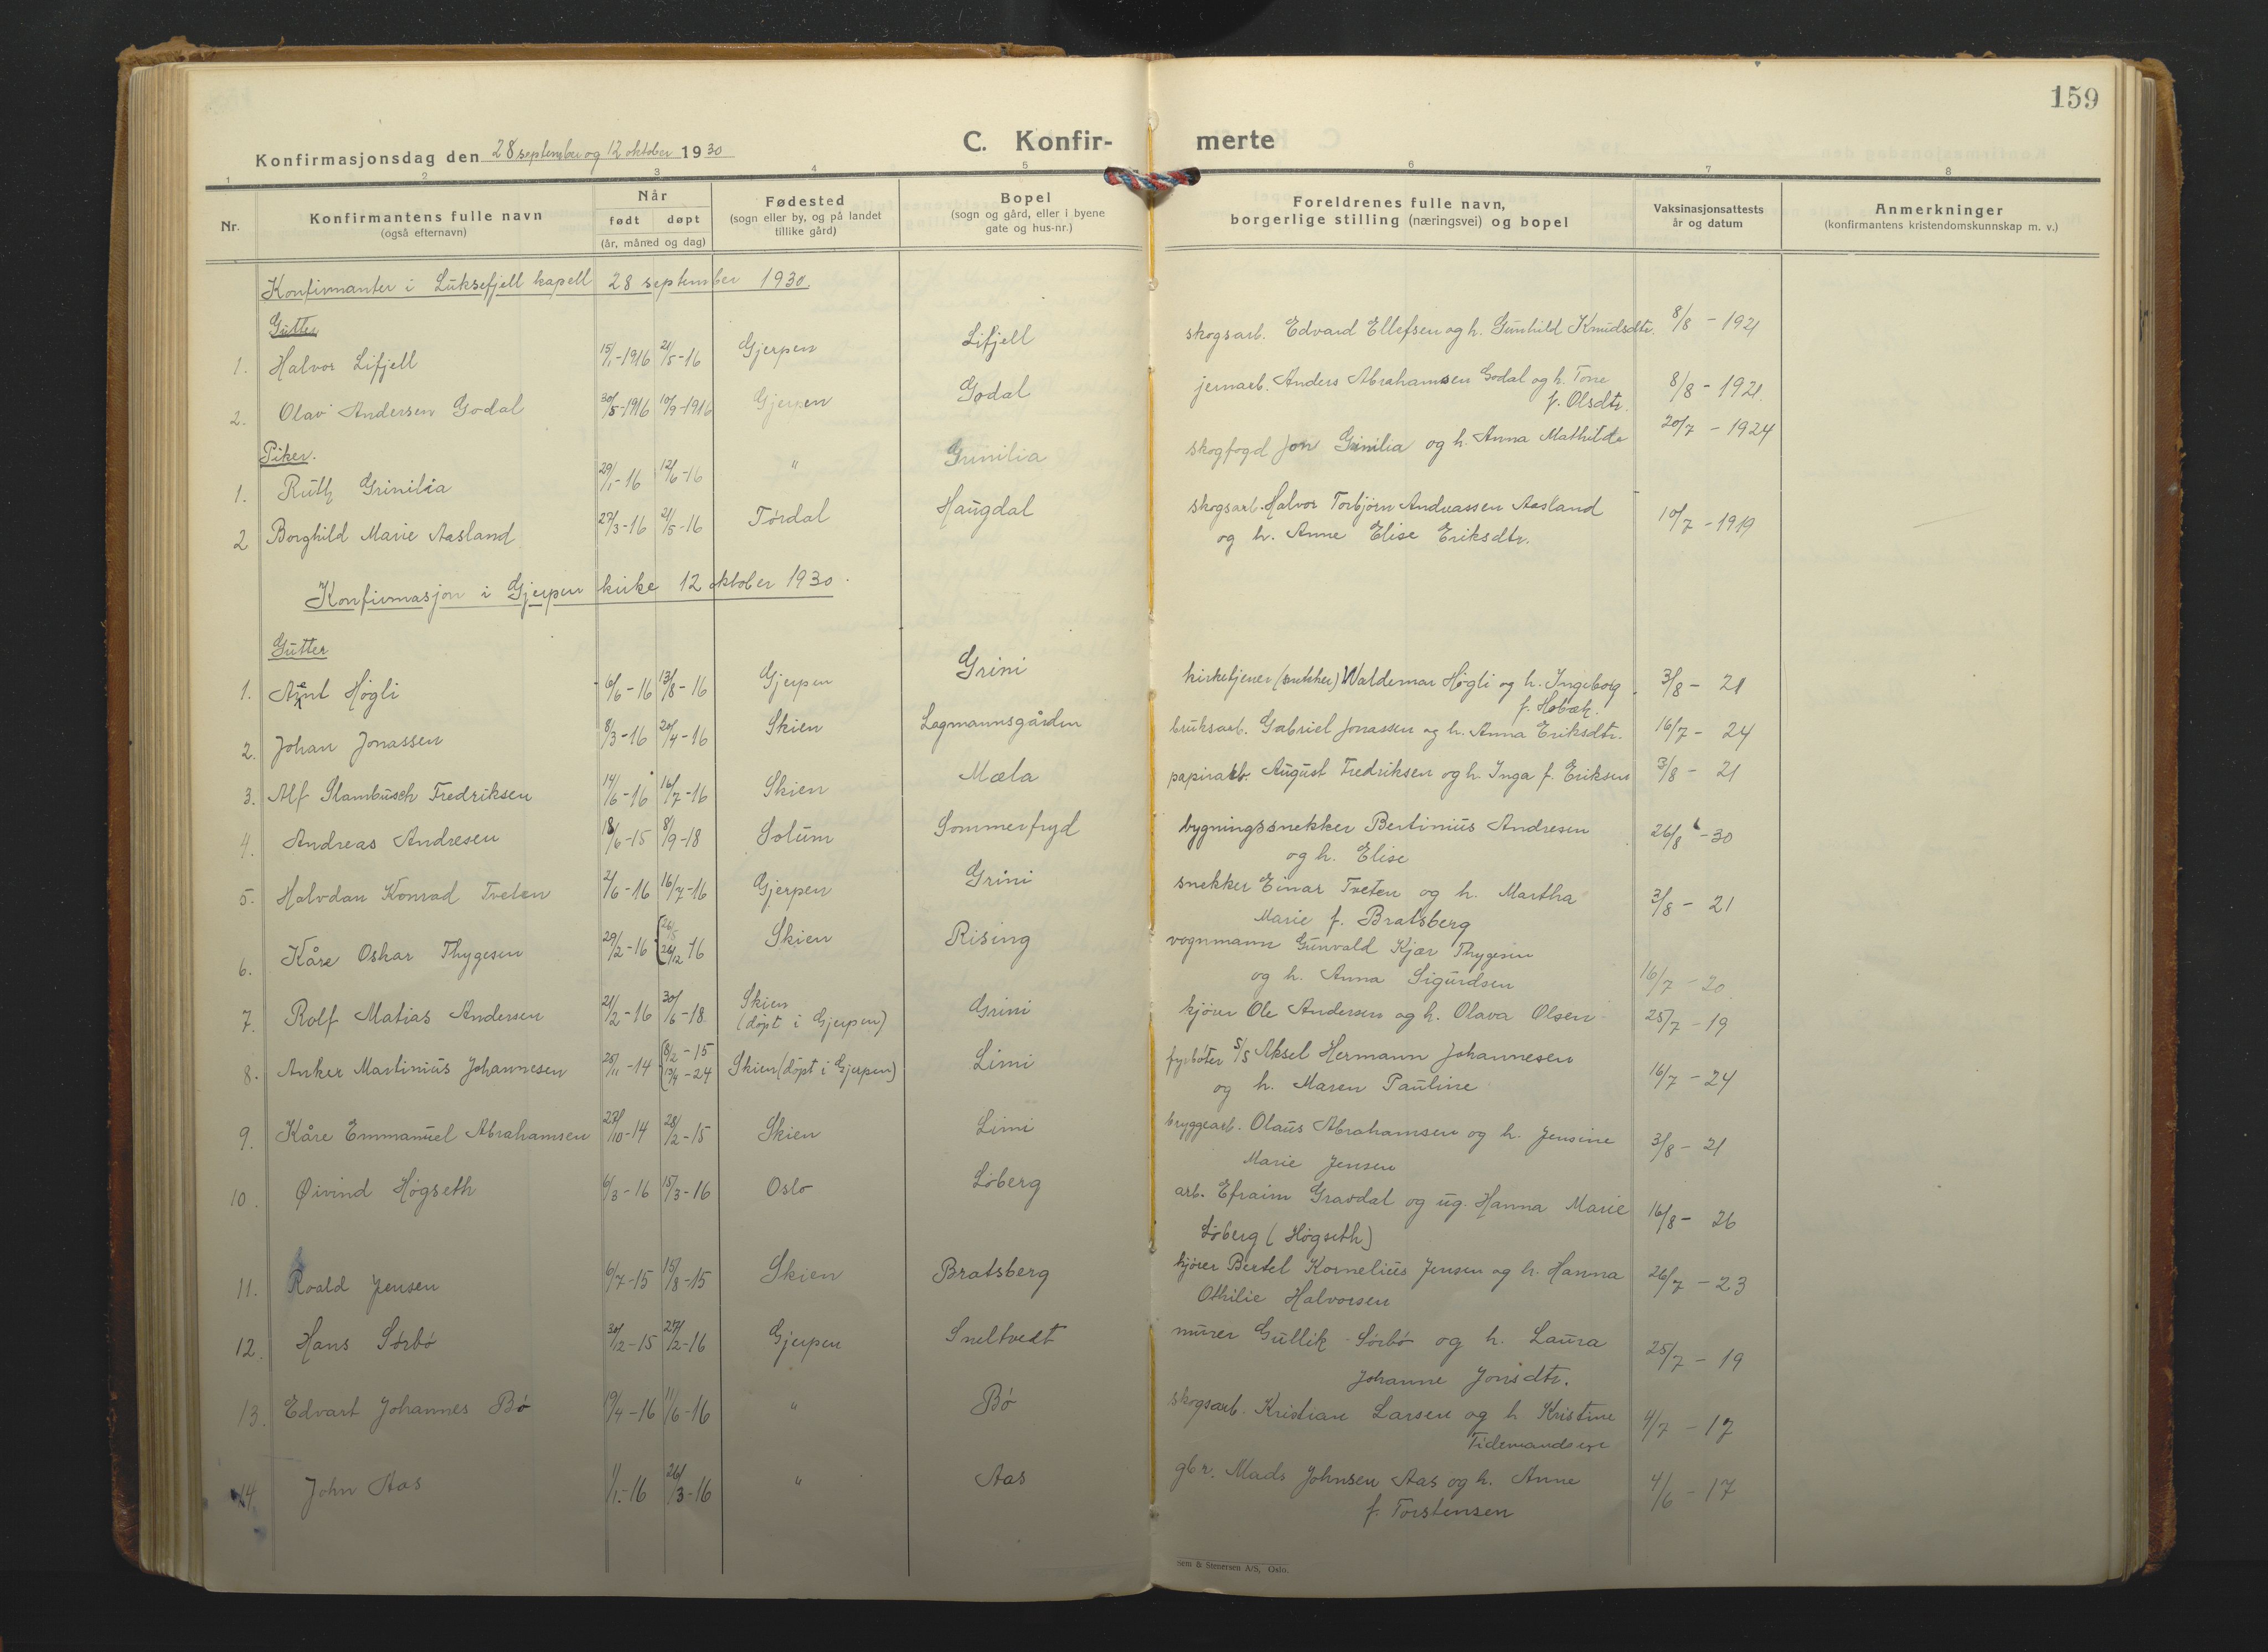 159
C. Konfir- merte
Konfirmasjonsdag den 28 september og 12 oktober 1930
1 2 3 4 5 6 7 8
Nr.
Konfirmantens fulle navn
(også efternavn)
Når
født døpt
(år, måned og dag)
Fødested
(sogn eller by, og på landet
tillike gård)
Bopel
(sogn og gård, eller i byene
gate og hus-nr.)
Foreldrenes fulle navn,
borgerlige stilling (næringsvei) og bopel
Vaksinasjonsattests
år og datum
Anmerkninger
(konfirmantens kristendomskunnskap m. v.)
Konfirmanter i Luksefjell kapell 28 september 1930.
Gutter
1. Halvor Lifjell 15/1-1916 21/5-16 Gjerpen Lifjell skogsarb. Edvard Ellefsen og h. Gunhild Knudsdtr. 8/8 - 1921
2. Olav Andersen Godal 30/5-1916 10/9-1916 Gjerpen Godal jernarb. Anders Abrahamsen Godal og h. Tone 8/8 - 1921.
f. Olsdtr.
Piker.
1. Ruth Grinilia 29/1-16 12/6-16 " Grinilia skogfogd Jon Grinilia og h. Anna Mathilde 20/7 - 1924
2 Borghild Marie Aasland 27/3-16 21/5-16 Tørdal Haugdal skogsarb. Halvor Torbjørn Andreassen Aasland 10/7 - 1919
og h. Anne Elise Eriksdtr.
Konfirmasjon i Gjerpen kirke 12 oktober 1930.
Gutter
1. Høgli 6/6-16 13/8-16 Gjerpen Grini kirketjener (snekker) Waldemar Høgli og h. Ingeborg 3/8 - 21
f. Hobæk.
2. Johan Jonassen 8/3-16 20/4-16 Skien Lagmannsgården bruksarb. Gabriel Jonassen og h. Anna Eriksdtr. 16/7 - 24
3. Alf Slambusch Fredriksen 14/6-16 16/7-16 Skien Mæla papirarb. August Fredriksen og h. Inga f. Eriksen 3/8 - 21
4. Andreas Andresen 18/6-15 8/9-18 Solum Sommerfryd bygningssnekker Bertinius Andresen 26/8 - 30
og h. Elise
5. Halvdan Konrad Tveten 2/6-16 16/7-16 Gjerpen Grini snekker Einar Tveten og h. Martha 3/8 - 21
Marie f. Bratsberg
6. Kåre Oskar Thygesen 29/2-16 26/12-16 Skien Rising vognmann Gunvald Kjær Thygesen
og h. Anna Sigurdsen 16/7 - 20
7. Rolf Matias Andersen 21/2-16 30/6-18 Skien (døpt i Gjerpen) Grini kjører Ole Andersen og h. Olava Olsen 25/7 - 19
8. Anker Martinius Johannesen 25/11-14 8/2-15 13/4-24 Skien (døpt i Gjerpen) Limi fyrbøter s/s Aksel Hermann Johannesen 16/7 - 24
og h. Maren Pauline
9. Kåre Emmanuel Abrahamsen 23/10-14 28/2-15 Skien Limi bryggearb. Olaus Abrahamsen og h. Jensine 3/8 - 21
Marie Jensen
10. Øivind Høgseth 6/3-16 15/3-16 Oslo Løberg arb. Efraim Gravdal og ug. Hanna Marie 16/8 - 26
Løberg (Høgseth)
11. Roald Jensen 6/7-15 15/8-15 Skien Bratsberg kjører Bertel Kornelius Jensen og h. Hanna 26/7 - 23
Othilie Halvorsen
12. Hans Sørbø 30/12-15 27/2-16 Gjerpen Sneltvedt murer Gullik Sørbø og h. Laura 25/7 - 19
Johanne Jonsdtr.
13. Edvart Johannes Bø 19/4-16 11/6-16 " Bø skogsarb. Kristian Larsen og h. Kristine 4/7 - 17
14. John Aas 1/1-16 26/3-16 " Aas gbr. Mads Johnsen Aas og h. Anne 4/6 - 17
f. Torstensen
Sem & Stenersen A/S, Oslo.